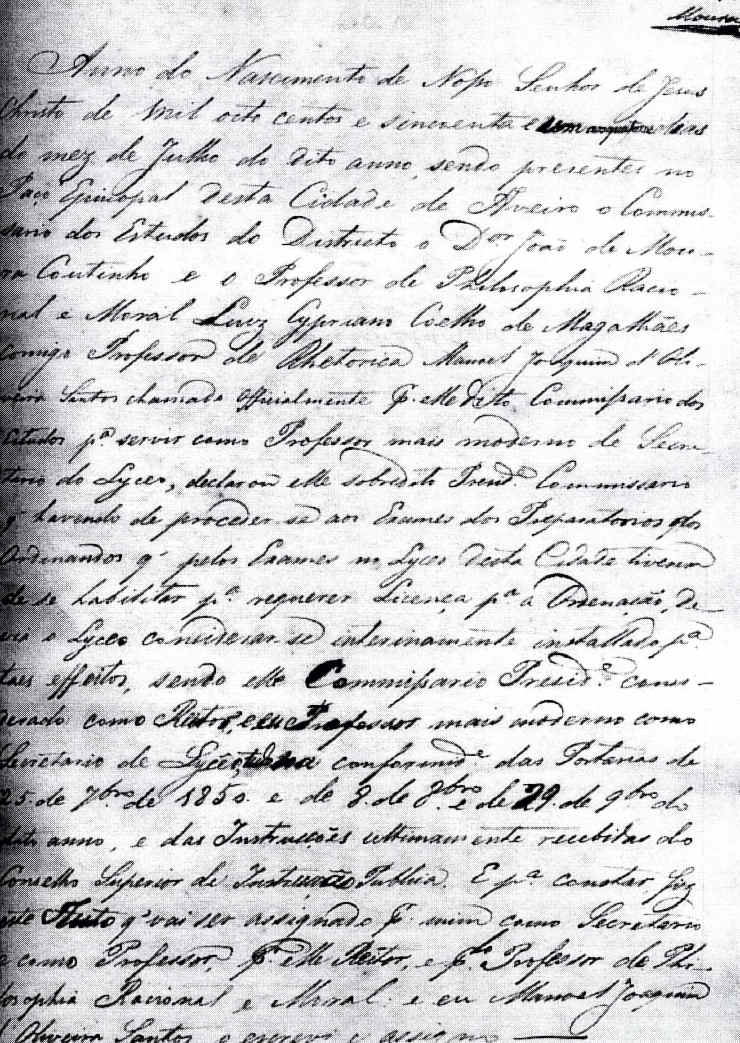 Moura
Anno do Nascimento de Nosso Senhor de Jesus
Christo de mil oito centos e sincoenta e um aos quatorze dias
do mez de Julho do dito anno, sendo presentes no
Paço Episcopal desta Cidade de Aveiro o Commis-
sario dos Estudos do Districto o Dor João de Mou-
ra Coutinho e o Professor de Philosophia Racio-
nal e Moral Luiz Cypriano Coelho de Magalhães
Comigo Professor de Rhetorica Manoel Joaquim d'Oli-
veira Santos chamado officialmente pr. elle dito Commissario dos
Estudos pa. servir como Professor mais moderno de Secre-
tario do Lyceo, declarou elle sobredito Presid.e Commissario
q' havendo de proceder-se aos Exames dos Preparatorios dos
Ordinandos q' pelos Exames no Lyceo desta Cidade tiverem
de se habilitar pa. requerer Licença pa. a Ordenação, de-
via o Lyceo considerar-se interinamente installado pa.
taes effeitos, sendo elle Commissario Presid.e consi-
derado como Reitor, e eu Professor mais moderno como
Secretario de Lyceo, conformid.e das Portarias de
25 de 7bro de 1850. e de 8 de 8bro e de 29 de 9bro do
dito anno, e das Instrucções ultimamente recebidas do
Conselho Superior de Instrucção Publica. E pa. constar fiz
este Auto q' vai ser assignado pr. mim como Secretario
e como Professor, pr. elle Reitor, e plo. Professor de Phi-
losophia Racional e Moral: e eu Manoel Joaquim
d'Oliveira Santos o escrevi e assigno